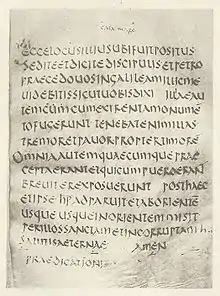 ECCELOCUSILLIUSUBIFUITPOSITUS
SEDITEETDICITEDISCIPULISETPETRO
PRAECEDOUOSINGALILEAMILLICME
UIDEBITISSICUTUOBISDIXI ILLAEAU
TEMCUMCUMEXIRENTAMONUME
TOFUGERUNT TENEBATENIMILLAS
TREMORETPAUORPROPTERTIMORE
OMNIAAUTEMQUAECUMQUEPRAE
CEPTAERANTETQUICUMPUEROERAN
BREUITEREXPOSUERUNT POSTHAEC
ETIPSEHPADPARUITETABORIENTE
USQUEUSQUEINORIENTEMMISIT
PERILLOSSANCTAMETINCORRUPTAM
SALUTISAETERNAE AMEN
PRAEDICATIONIS